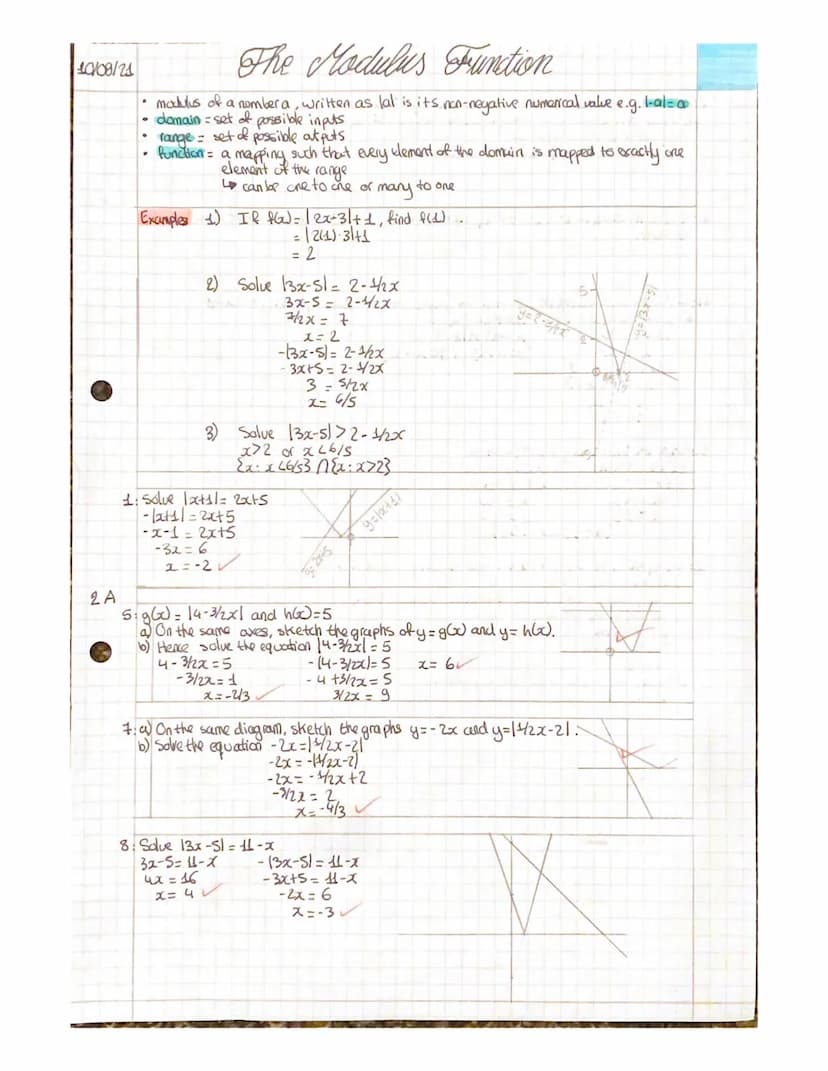 10/09/21
The Modulus Function
• modulus of a number a, written as |a| is its non-negative numerical value e.g. |-a|=a
• domain = set of possible inputs
• range = set of possible outputs
• function = a mapping such that every element of the domain is mapped to exactly one
element of the range
↳ can be one to one or many to one
Examples 1) If f(x)=|2x-3|+1, find f(1).
= |2(1)-3|+1
= 2
2) Solve |3x-5| = 2-1/2x
3x-5 = 2-1/2x
7/2x = 7
x = 2
-|3x-5| = 2-1/2x
-3x+5 = 2-1/2x
3 = 5/2x
x = 6/5
5
y=2-1/2x
y=|3x-5|
2
3) Solve |3x-5| > 2-1/2x
x>2 or x<6/5
{x: x<6/5} ∩ {x: x>2}
1: Solve |x+1| = 2x+5
-|x+1| = 2x+5
-x-1 = 2x+5
-3x = 6
x = -2
y=2x+5
y=|x+1|
2A
5: g(x) = |4-3/2x| and h(x)=5
a) On the same axes, sketch the graphs of y=g(x) and y=h(x).
b) Hence solve the equation |4-3/2x| = 5
4-3/2x = 5 -(4-3/2x) = 5 x = 6
-3/2x = 1 -4+3/2x = 5
x = -2/3 3/2x = 9
7: a) On the same diagram, sketch the graphs y=-2x and y=|1/2x-2|.
b) Solve the equation -2x=|1/2x-2|
-2x = -(1/2x-2)
-2x = -1/2x+2
-3/2x = 2
x = -4/3
8: Solve |3x-5| = 11-x
3x-5 = 11-x -|3x-5| = 11-x
4x = 16 -3x+5 = 11-x
x = 4 -2x = 6
x = -3